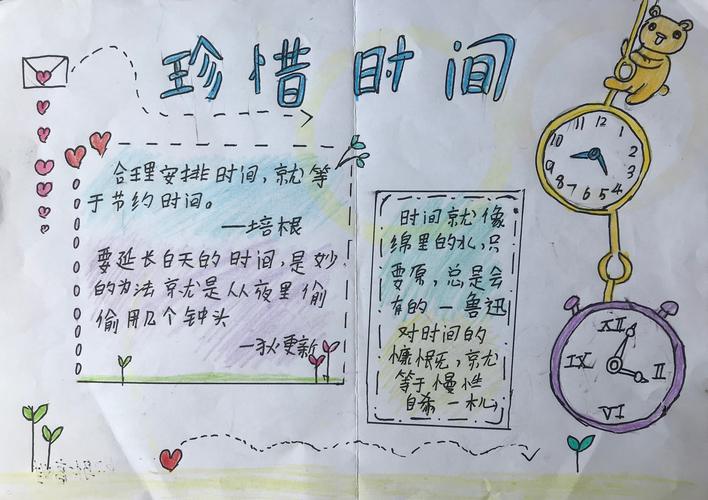 珍惜时间
合理安排时间，就等
于节约时间。
—培根
要延长白天的时间，是妙
的办法就是从夜里偷
偷用几个钟头
—狄更新
时间就像
绵里的水，只
要原，总是会
有的—鲁迅
对时间的
慷慨无，就
等于慢性
自杀—机
12
11 1
10 2
9 3
8 4
7 6 5
XII
IX II
VI